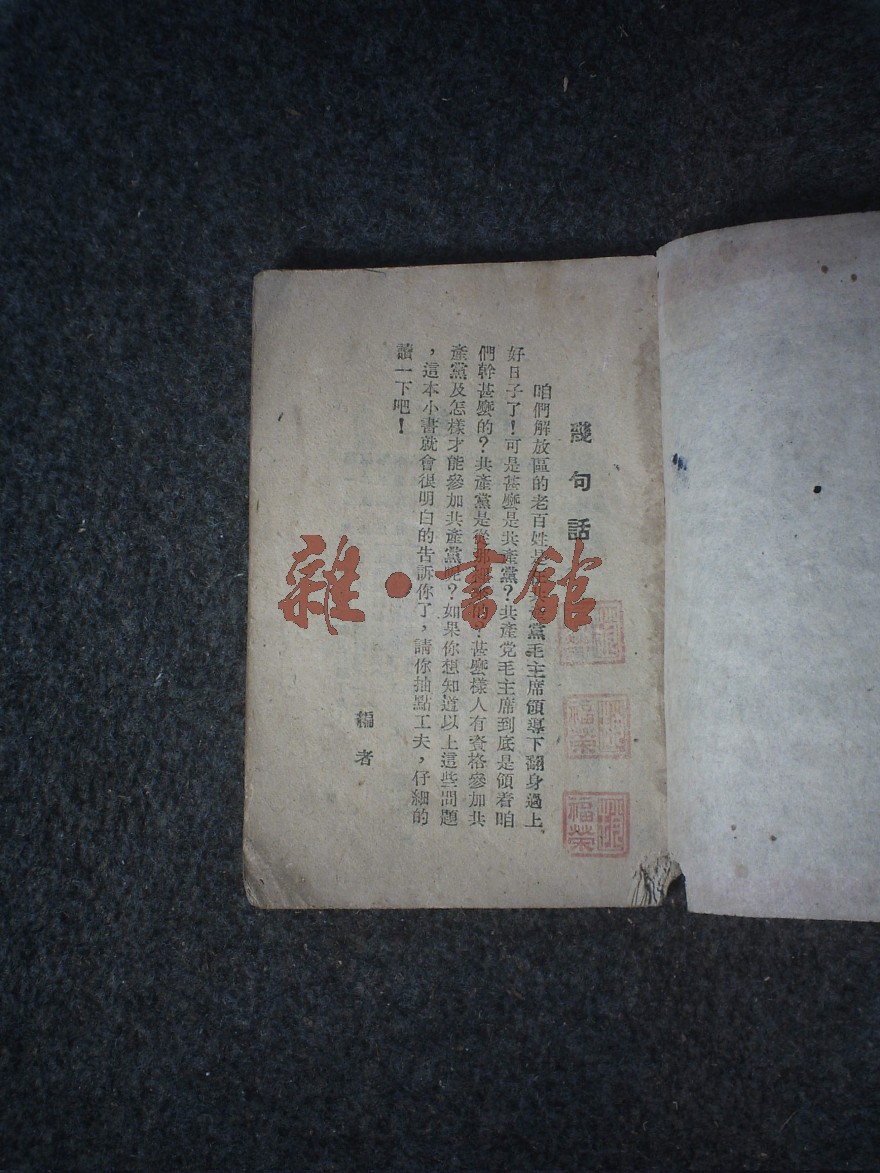 幾句話
咱們解放區的老百姓是在共產黨毛主席領導下翻身過上
好日子了！可是甚麼是共產黨？共產党毛主席到底是領着咱
們幹甚麼的？共產黨是從那裡來的？甚麼樣人有資格參加共
產黨及怎樣才能參加共產黨呢？如果你想知道以上這些問題
，這本小書就會很明白的告訴你了，請你抽點工夫，仔細的
讀一下吧！
編者
雜·書館
福榮
福榮